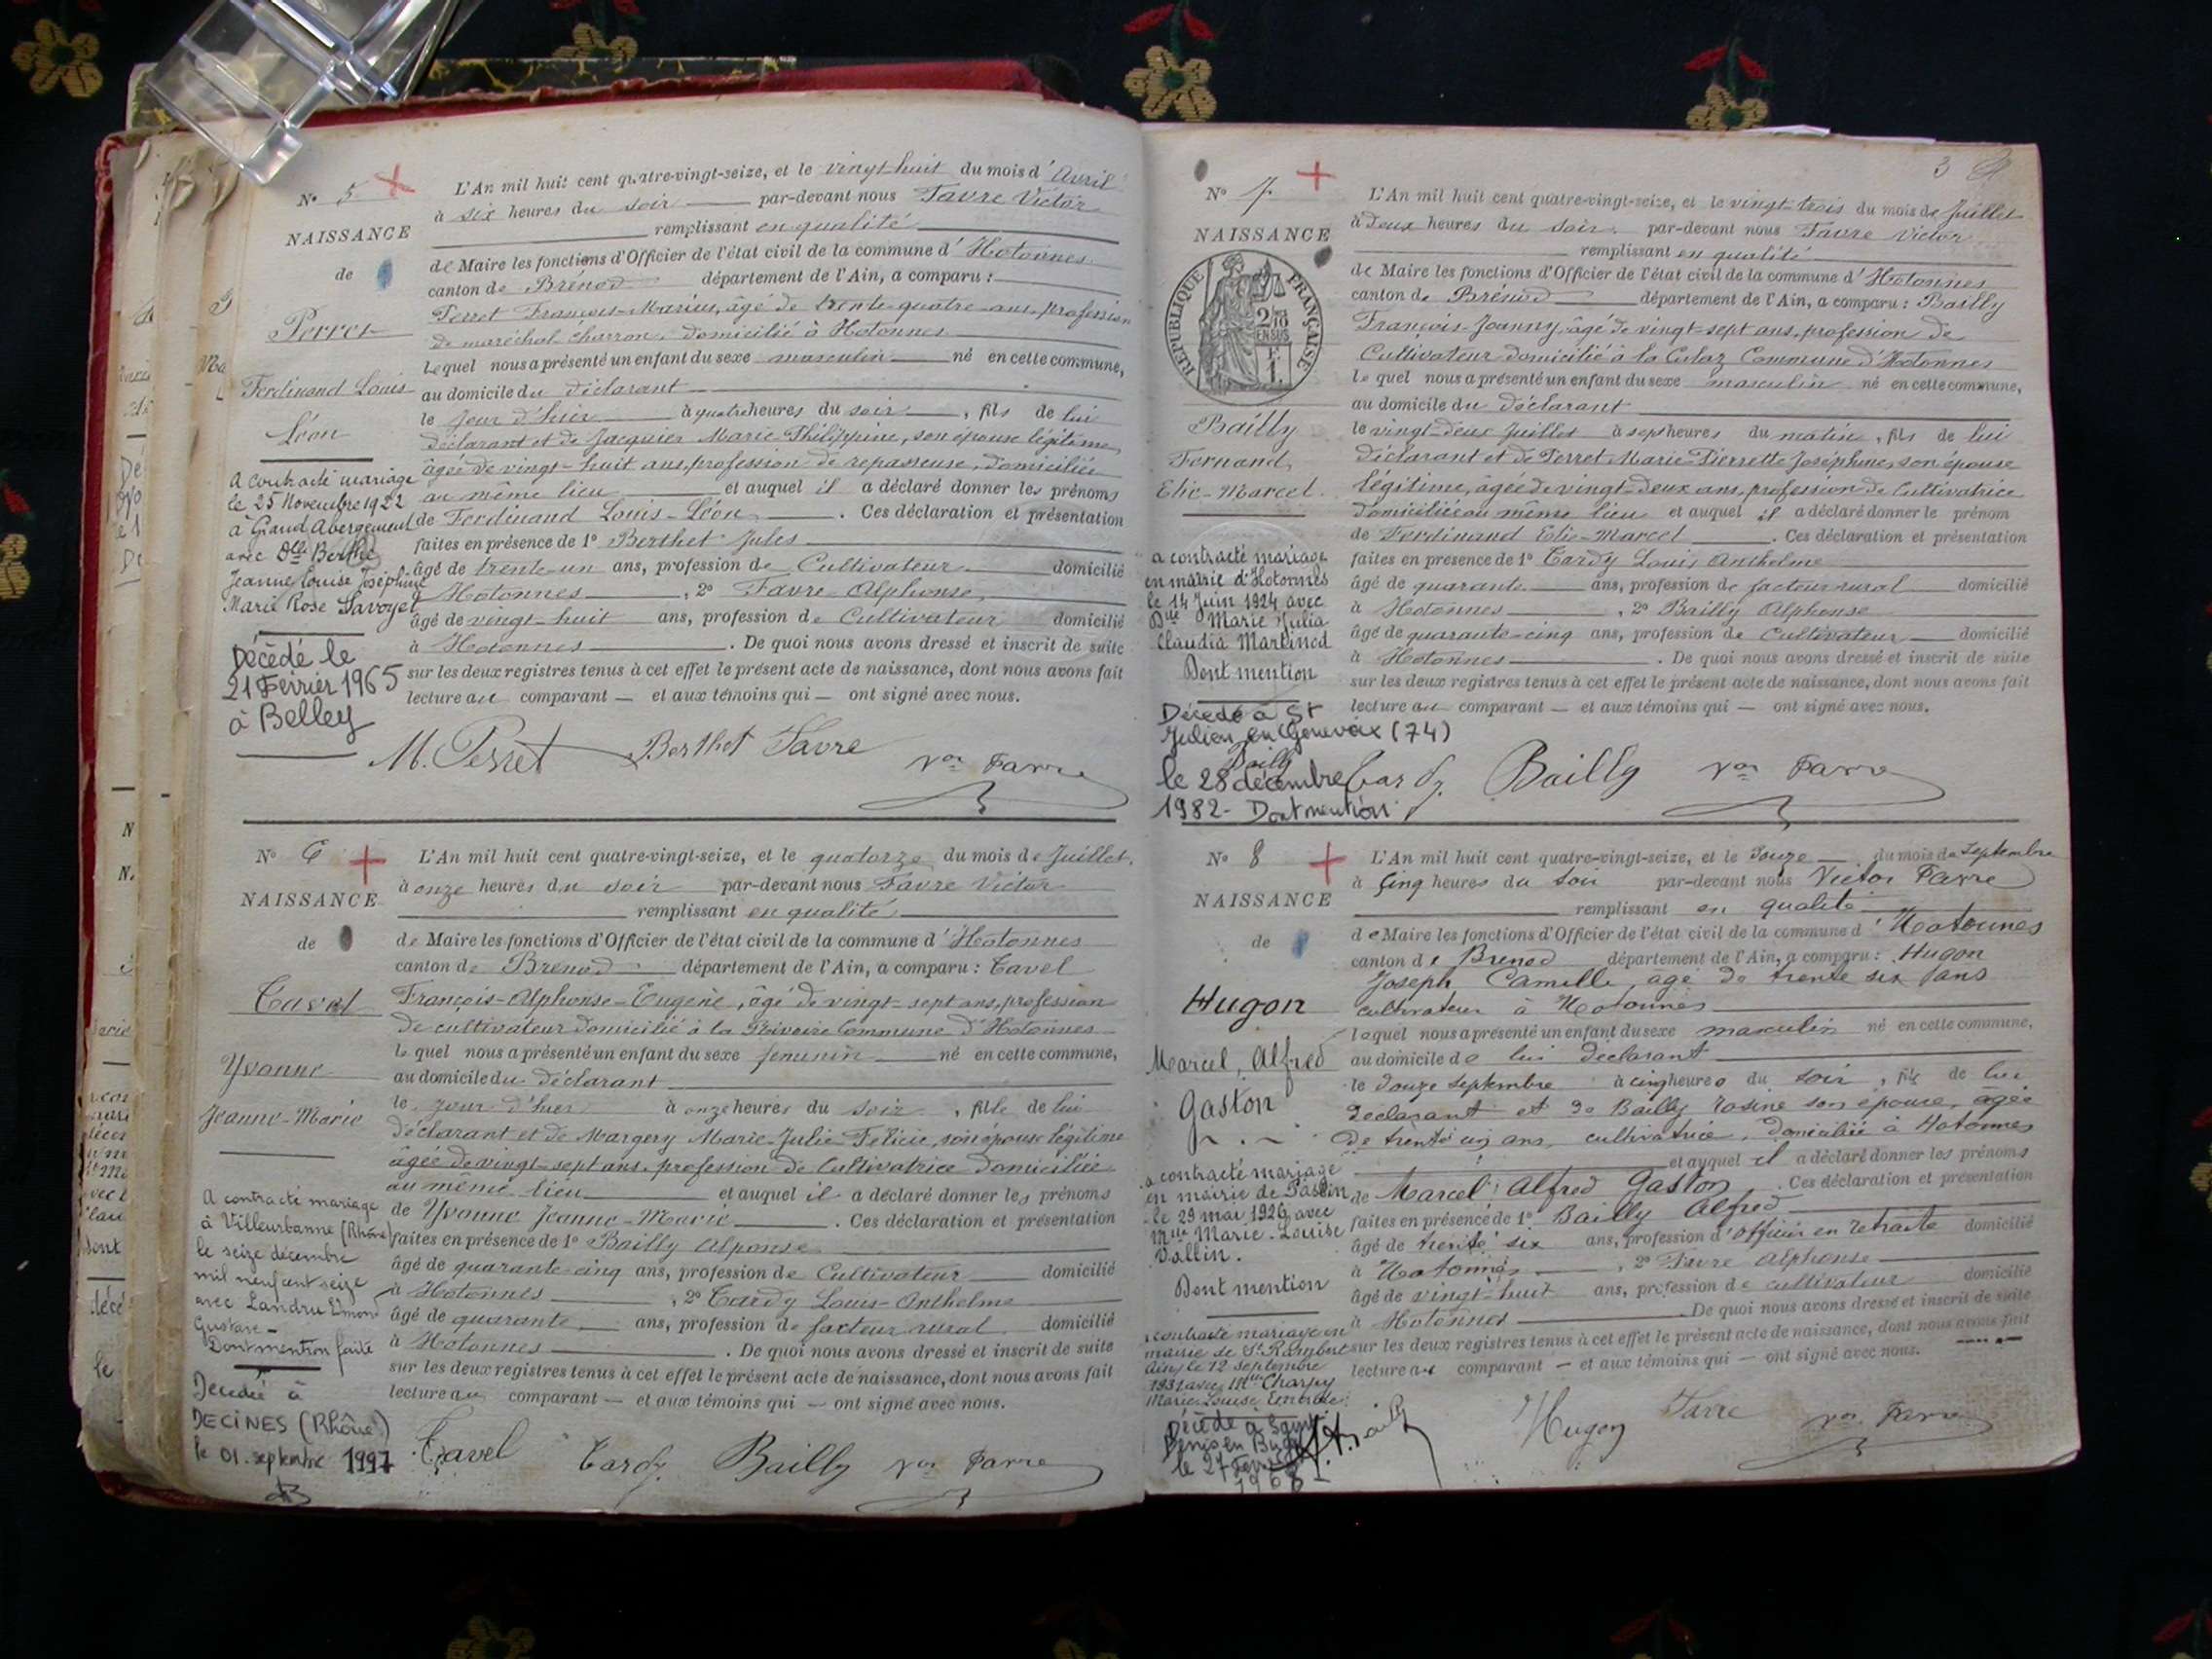 N° 5
NAISSANCE
de
Perret
Ferdinand Louis
Léon
A contracté mariage
le 25 Novembre 1922
à Grand Abergement
avec Dlle Berthe
Jeanne Louise Joséphine
Marie Rose Savoyet
Décédé le
21 Février 1965
à Belley
L'An mil huit cent quatre-vingt-seize, et le vingt huit du mois d'Avril
à six heures du soir par-devant nous Favre Victor
remplissant en qualité
de Maire les fonctions d'Officier de l'état civil de la commune d'Hotonnes
canton de Brénod département de l'Ain, a comparu :
Perret François-Marius, âgé de trente-quatre ans, profession
de maréchal charron, domicilié à Hotonnes
Lequel nous a présenté un enfant du sexe masculin né en cette commune,
au domicile du déclarant
le jour d'hier à quatre heures du soir, fils de lui
déclarant et de Jacquier Marie Philippine, son épouse légitime,
âgée de vingt-huit ans, profession de repasseuse, domiciliée
au même lieu et auquel il a déclaré donner les prénoms
de Ferdinand Louis-Léon. Ces déclaration et présentation
faites en présence de 1° Berthet Jules
âgé de trente-un ans, profession de Cultivateur domicilié
à Hotonnes, 2° Favre Alphonse,
âgé de vingt-huit ans, profession de Cultivateur domicilié
à Hotonnes. De quoi nous avons dressé et inscrit de suite
sur les deux registres tenus à cet effet le présent acte de naissance, dont nous avons fait
lecture au comparant — et aux témoins qui — ont signé avec nous.
M. Perret Berthet Favre Vor Favre
N° 6
NAISSANCE
de
Tavel
Yvonne
Jeanne-Marie
A contracté mariage
à Villeurbanne (Rhône)
le seize décembre
mil neuf cent seize
avec Landru Edmond
Gustave -
Dont mention faite
Décédée à
DECINES (Rhône)
le 01 septembre 1997
L'An mil huit cent quatre-vingt-seize, et le quatorze du mois de Juillet,
à onze heures du soir par-devant nous Favre Victor
remplissant en qualité
de Maire les fonctions d'Officier de l'état civil de la commune d'Hotonnes
canton de Brénod département de l'Ain, a comparu : Tavel
François-Alphonse-Eugène, âgé de vingt-sept ans, profession
de cultivateur domicilié à la Rivoire Commune d'Hotonnes
lequel nous a présenté un enfant du sexe féminin né en cette commune,
au domicile du déclarant
le jour d'hier à onze heures du soir, fille de lui
déclarant et de Margery Marie-Julie Félicie, son épouse légitime
âgée de vingt-sept ans, profession de Cultivatrice domiciliée
au même lieu et auquel il a déclaré donner les prénoms
de Yvonne Jeanne-Marie. Ces déclaration et présentation
faites en présence de 1° Bailly Alponse
âgé de quarante-cinq ans, profession de Cultivateur domicilié
à Hotonnes, 2° Tardy Louis-Anthelme
âgé de quarante ans, profession de facteur rural domicilié
à Hotonnes. De quoi nous avons dressé et inscrit de suite
sur les deux registres tenus à cet effet le présent acte de naissance, dont nous avons fait
lecture au comparant — et aux témoins qui — ont signé avec nous.
Tavel Tardy Bailly Vor Favre
3
N° 7
NAISSANCE
RÉPUBLIQUE FRANÇAISE
Bailly
Fernand,
Elie-Marcel
a contracté mariage
en mairie d'Hotonnes
le 14 Juin 1924 avec
Dlle Marie Julia
Claudia Martinod
Dont mention
Décédé à St
Julien en Genevois (74)
le 28 décembre
1982 - Dont mention
L'An mil huit cent quatre-vingt-seize, et le vingt-trois du mois de Juillet
à deux heures du soir par-devant nous Favre Victor
remplissant en qualité
de Maire les fonctions d'Officier de l'état civil de la commune d'Hotonnes
canton de Brénod département de l'Ain, a comparu : Bailly
François-Joanny, âgé de vingt-sept ans, profession de
Cultivateur domicilié à la Commune d'Hotonnes
lequel nous a présenté un enfant du sexe masculin né en cette commune,
au domicile du déclarant
le vingt-deux Juillet à sept heures du matin, fils de lui
déclarant et de Perret Marie-Pierrette Joséphine, son épouse
légitime, âgée de vingt-deux ans, profession de Cultivatrice
domiciliée au même lieu et auquel il a déclaré donner le prénom
de Ferdinand Elie-Marcel. Ces déclaration et présentation
faites en présence de 1° Tardy Louis Anthelme
âgé de quarante ans, profession de facteur rural domicilié
à Hotonnes, 2° Bailly Alphonse
âgé de quarante-cinq ans, profession de Cultivateur domicilié
à Hotonnes. De quoi nous avons dressé et inscrit de suite
sur les deux registres tenus à cet effet le présent acte de naissance, dont nous avons fait
lecture au comparant — et aux témoins qui — ont signé avec nous.
Bailly Tardy Bailly Vor Favre
N° 8
NAISSANCE
de
Hugon
Marcel, Alfred
Gaston
a contracté mariage
en mairie de
le 29 mai 1926 avec
Mlle Marie-Louise
Vallin.
Dont mention
a contracté mariage en
mairie de St Rambert
Ain, le 12 septembre
1931 avec Mlle Charpy
Marie Louise
Décédé à Saint
Denis en Bugey
le 27
L'An mil huit cent quatre-vingt-seize, et le Douze du mois de Septembre
à Cinq heures du soir par-devant nous Victor Favre
remplissant en qualité
de Maire les fonctions d'Officier de l'état civil de la commune d'Hotonnes
canton de Brenod département de l'Ain, a comparu : Hugon
Joseph Camille, agé de trente six ans
cultivateur à Hotonnes
lequel nous a présenté un enfant du sexe masculin né en cette commune,
au domicile de lui déclarant
le Douze Septembre à cinq heures du soir, fils de lui
déclarant et de Bailly Rosine son épouse, âgée
de trente cinq ans, cultivatrice, domiciliée à Hotonnes
et auquel il a déclaré donner les prénoms
de Marcel Alfred Gaston. Ces déclaration et présentation
faites en présence de 1° Bailly Alfred
âgé de trente six ans, profession d'officier en retraite domicilié
à Hotonnes, 2° Favre Alphonse
âgé de vingt-huit ans, profession de cultivateur domicilié
à Hotonnes. De quoi nous avons dressé et inscrit de suite
sur les deux registres tenus à cet effet le présent acte de naissance, dont nous avons fait
lecture au comparant — et aux témoins qui — ont signé avec nous.
Hugon Favre Vor Favre